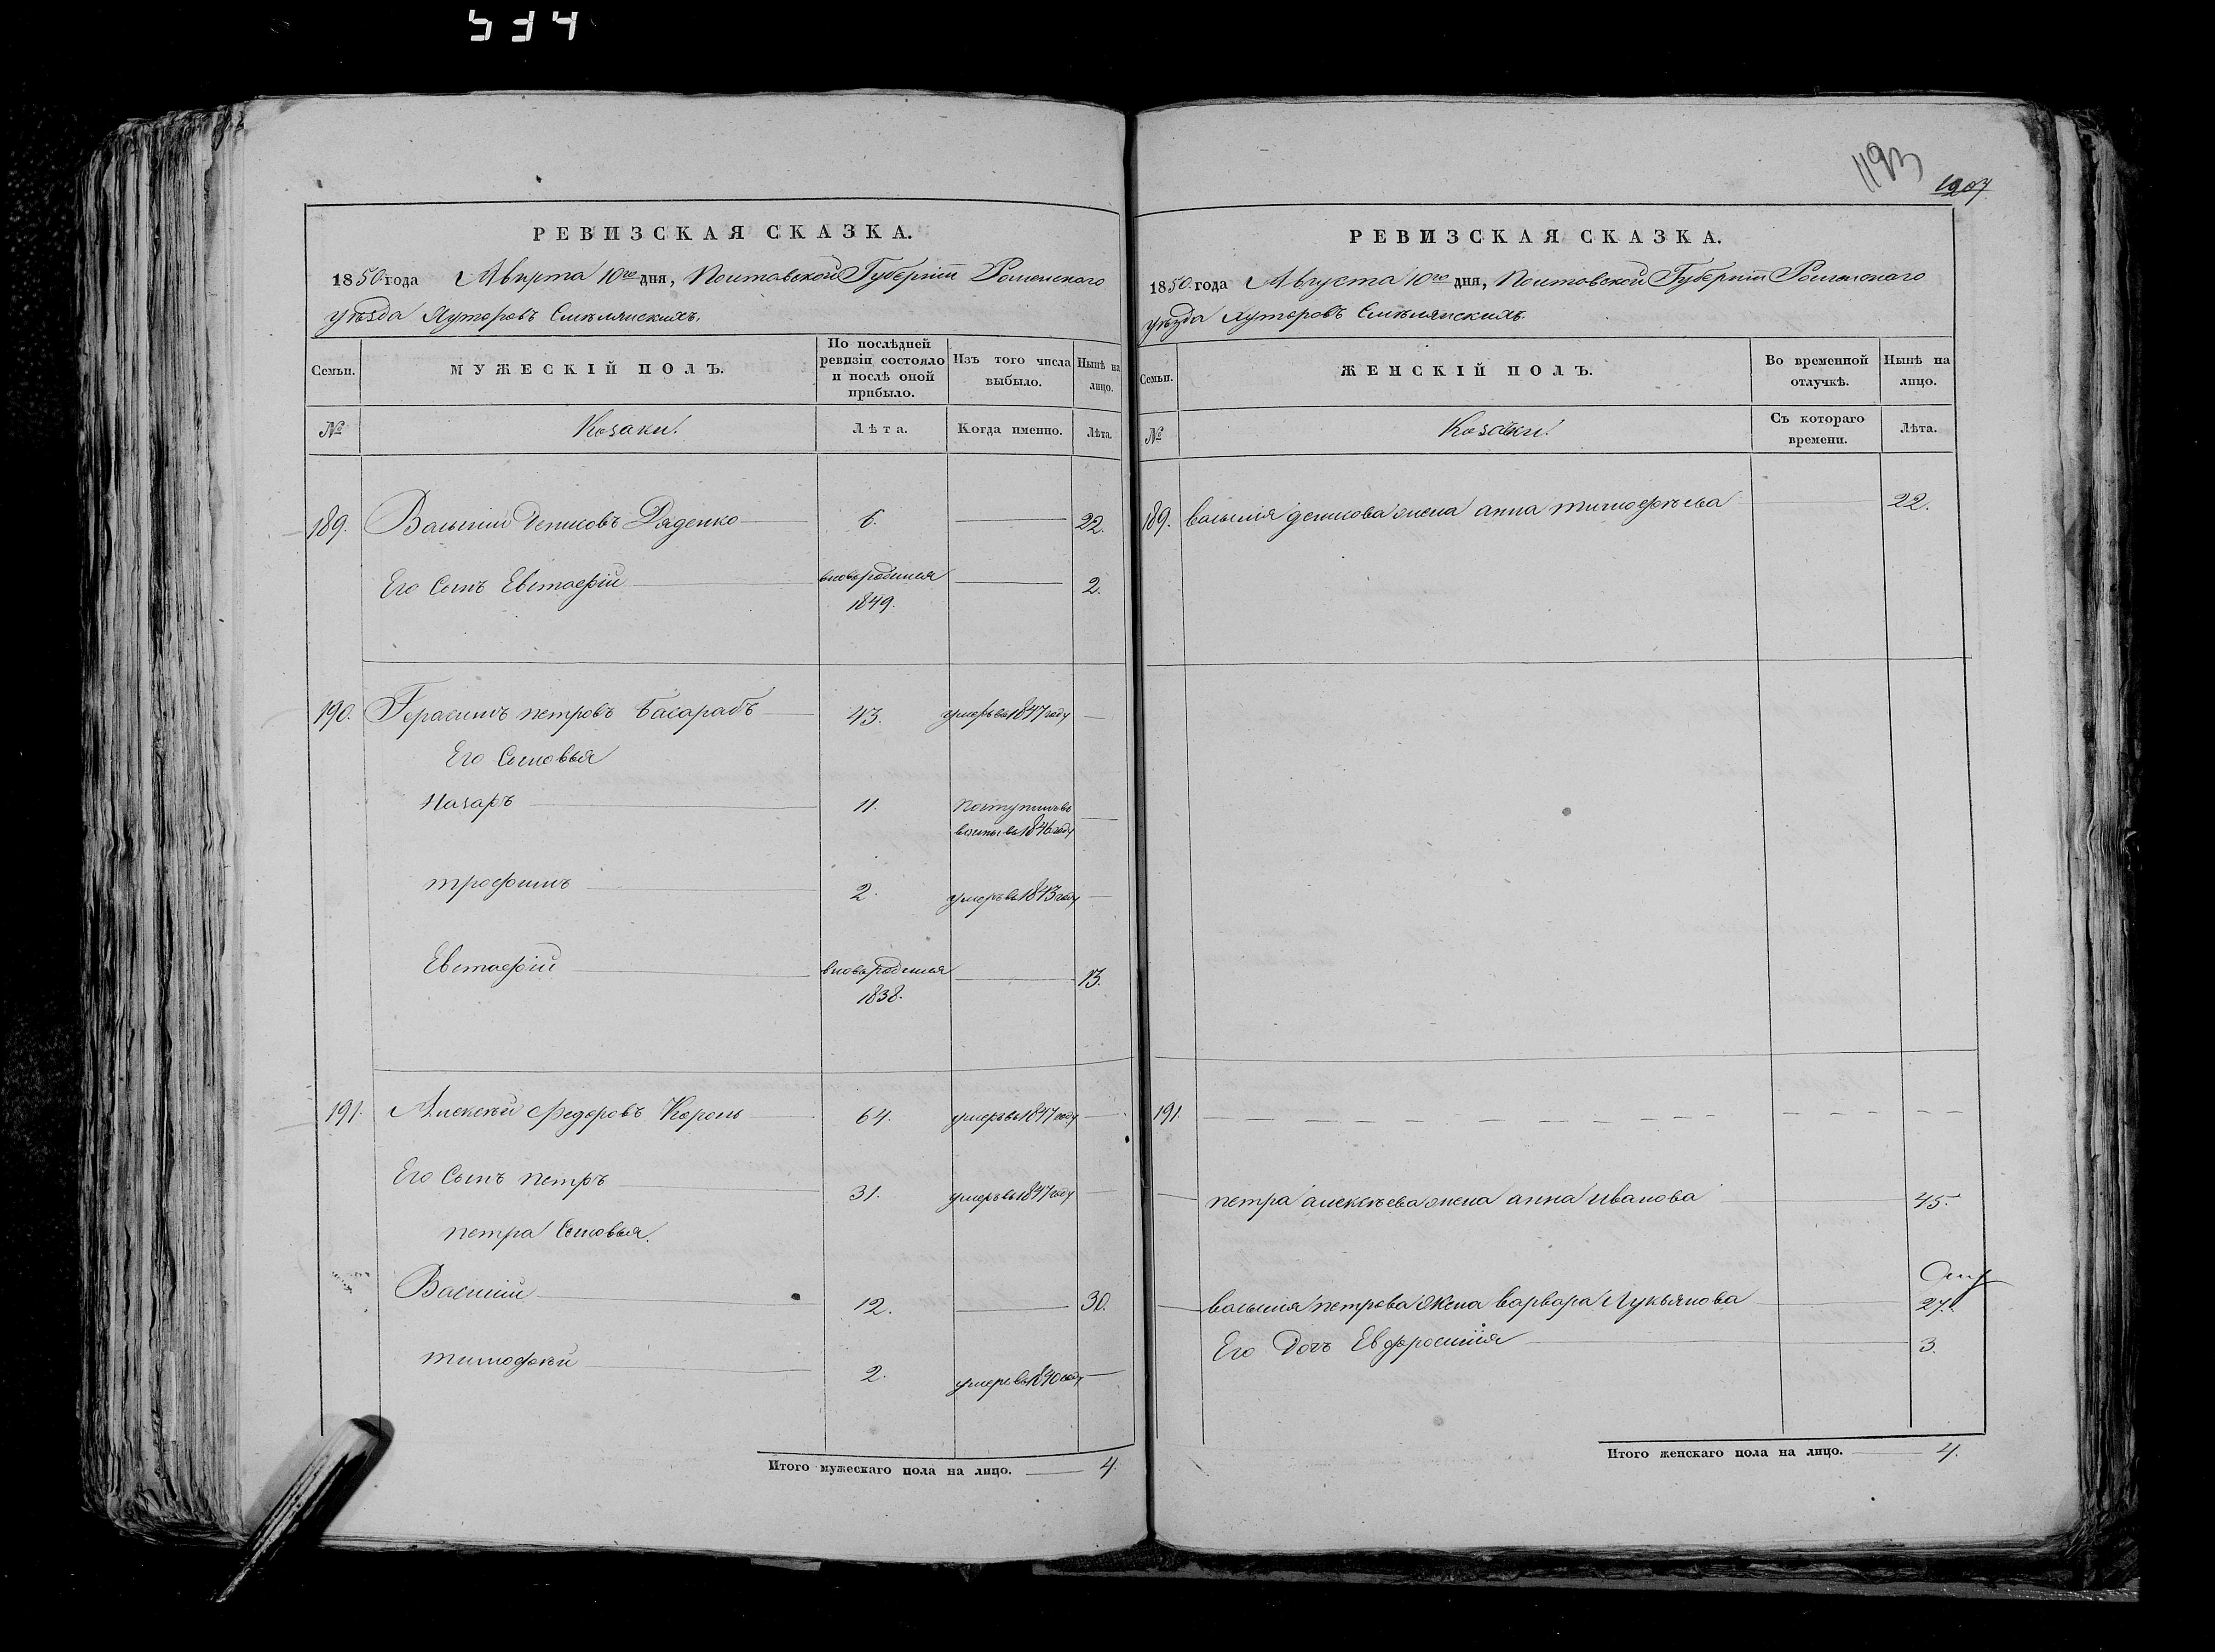 534
1193
1207
РЕВИЗСКАЯ СКАЗКА.
1850 года Августа 10го дня, Полтавской Губернiи Роменскаго
уѣзда Хуторовъ Смѣлянскихъ.
Семьи.
МУЖЕСКIЙ ПОЛЪ.
По послѣдней ревизiи состояло и послѣ оной прибыло.
Изъ того числа выбыло.
Нынѣ на лицо.
№
Козаки.
Лѣта.
Когда именно.
Лѣта.
189. Василiй Денисовъ Дяденко 6. 22.
Его Сынъ Евстафiй вновьродился 1849. 2.
190. Герасимъ петровъ Басарабъ 43. умеръ въ 1847 году
Его Сыновья
Назаръ 11. въ 1846 году
трофимъ 2. умеръ въ 1843 году
Евстафiй вновьродился 1838. 13.
191. Алексѣй Федоровъ Король 64. умеръ въ 1847 году
Его Сынъ петръ 31. умеръ въ 1847 году
петра Сыновья.
Василiй 12. 30.
тимофѣй 2. умеръ въ 1840 году
Итого мужескаго пола на лицо. 4.
РЕВИЗСКАЯ СКАЗКА.
1850 года Августа 10го дня, Полтовской Губернiи Роменскаго
уѣзда Хуторовъ Смѣлянскихъ.
Семьи.
ЖЕНСКIЙ ПОЛЪ.
Во временной отлучкѣ.
Нынѣ на лицо.
№
Козачки.
Съ котораго времени.
Лѣта.
189. василiя денисова жена анна тимофѣева 22.
191.
петра алексѣева жена анна иванова 45.
василия петрова жена варвара Лукьянова 27.
Его Дочь Евфросинiя 3.
Итого женскаго пола на лицо. 4.